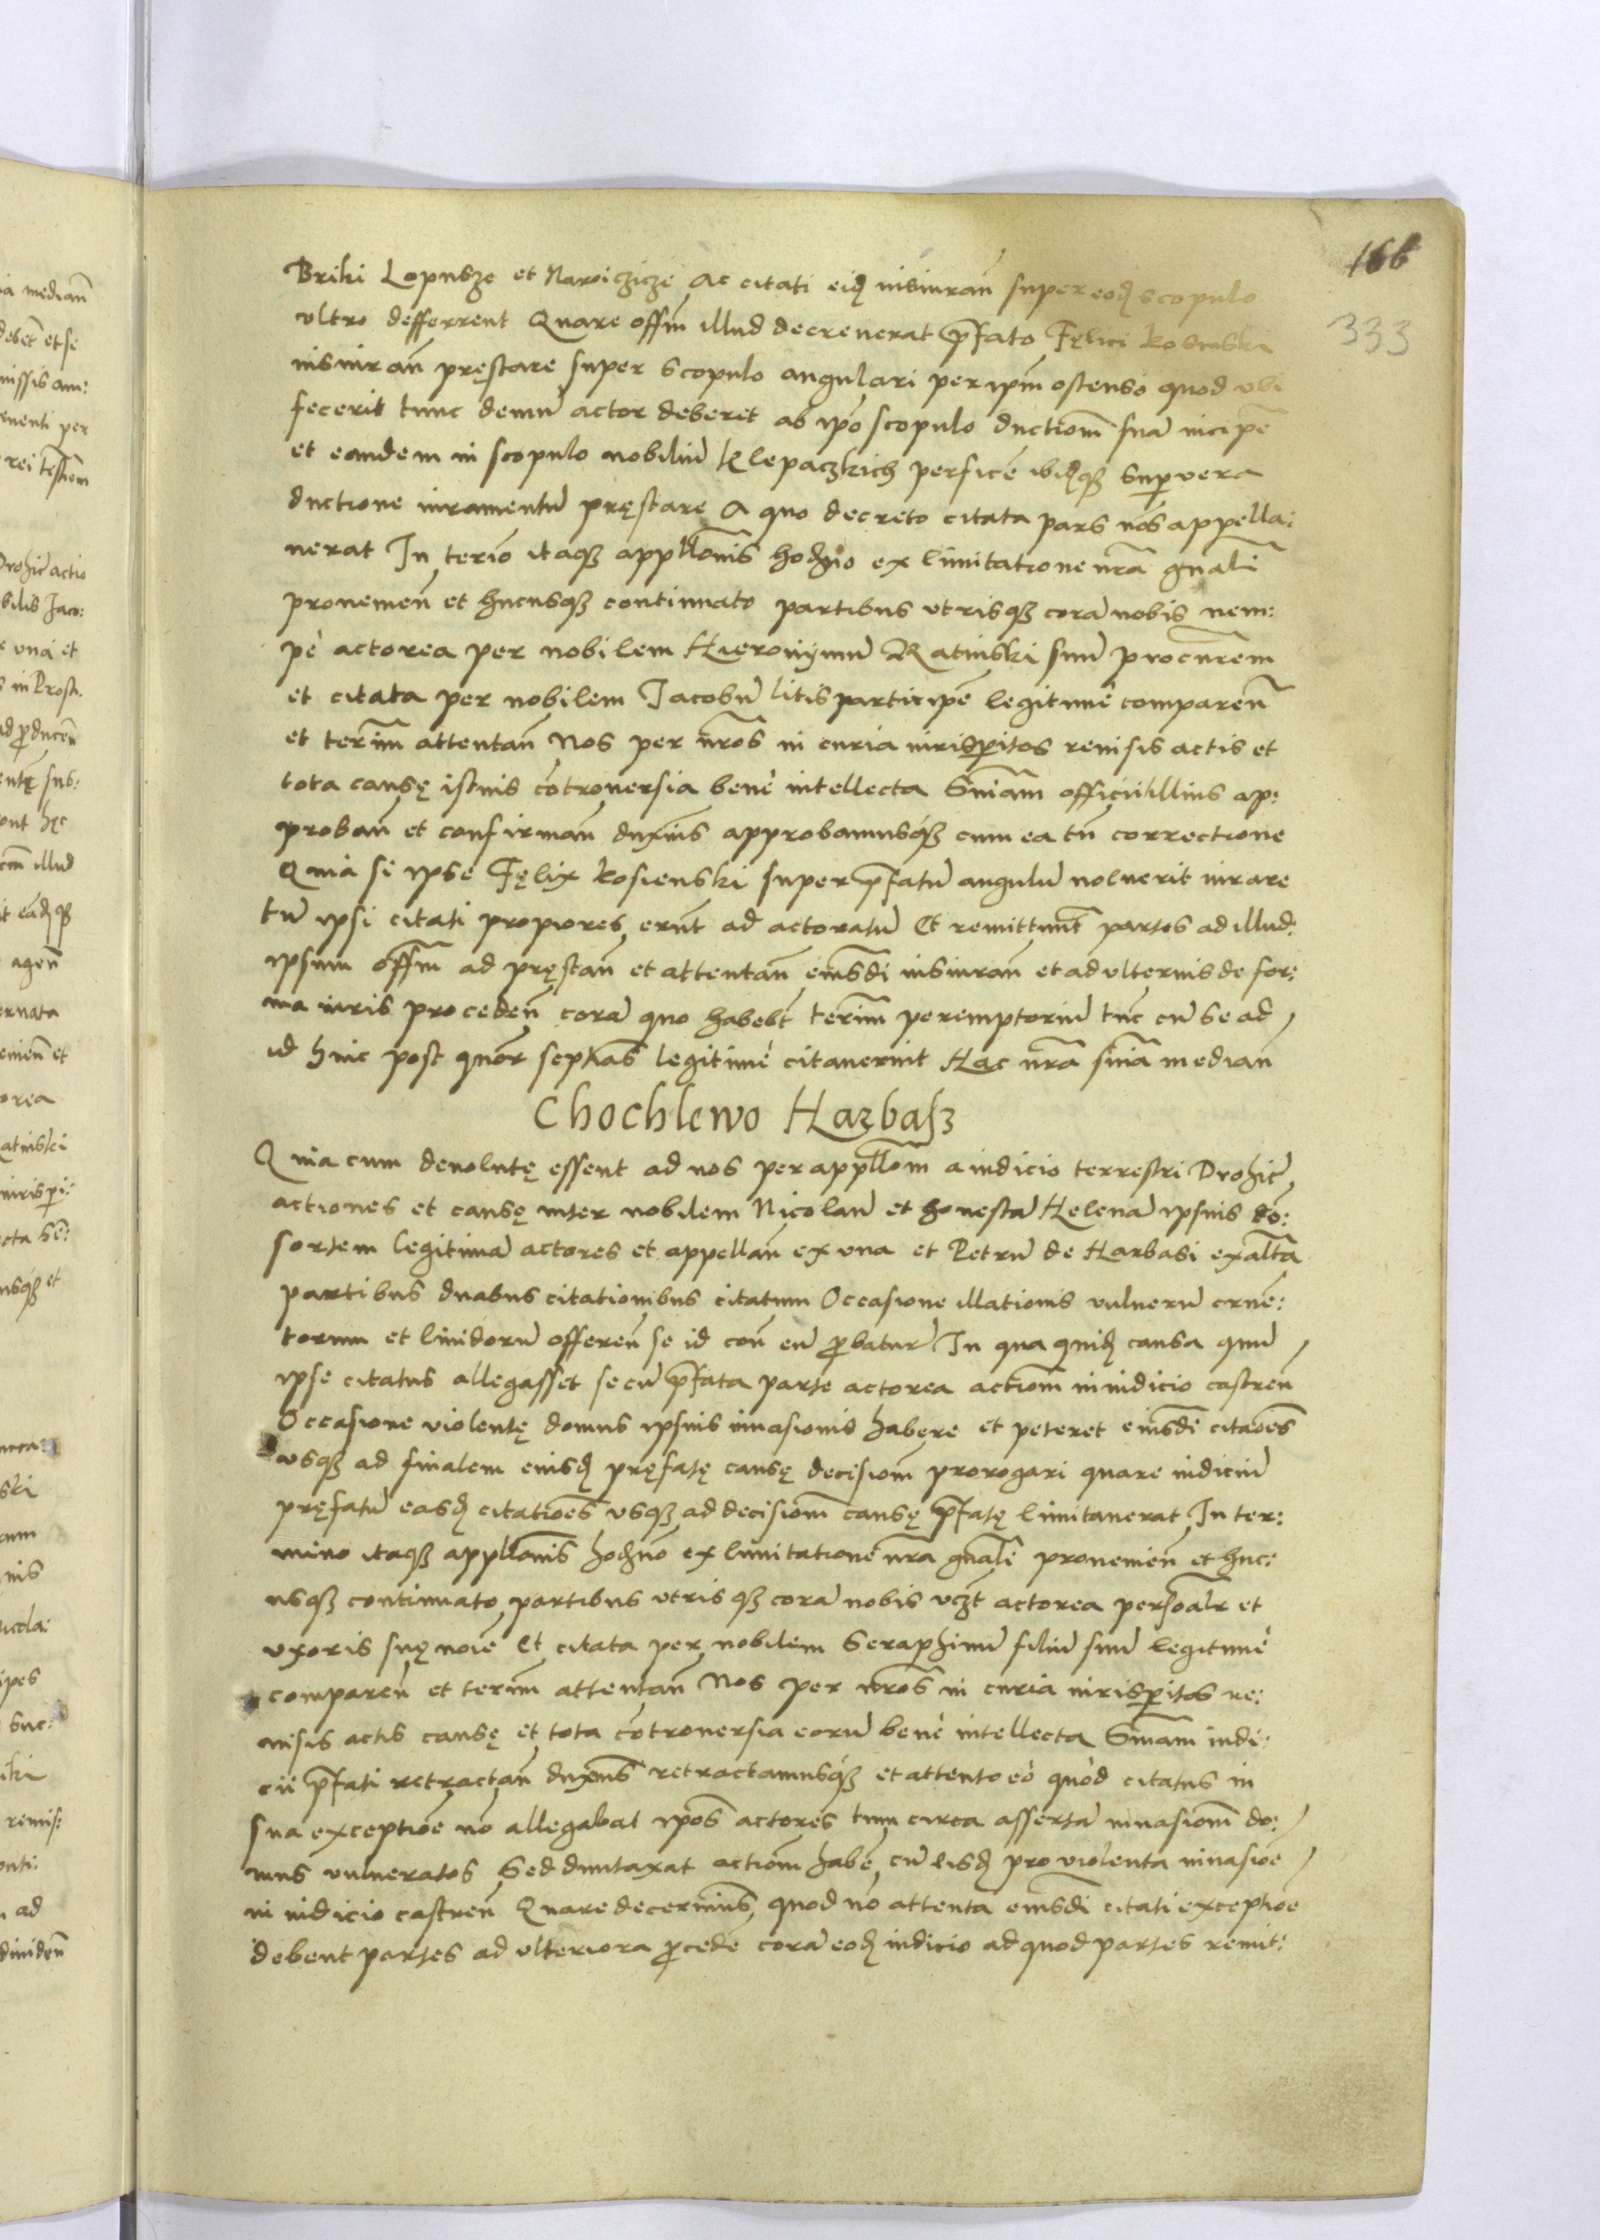 166
333
Briki Lopusze et Naroiczicze Ac citati eid iusiuran super eod scopulo
ultro defferrent Quare offm illud decreuerat pfato Felici kosinski
iusiuran pręstare super scopulo angulari per ipm ostenso quod ubi
fecerit tunc demu actor deberet ab ipo scopulo ductiom sua incipe
et eandem in scopulo nobiliu klepaczkich perfice ibidqз super vera
ductione iuramentu pręstare A quo decreto citata pars nos appella:
uerat In terio itaqз appllonis hodno ex limitatione nra gnali
prouenien et hucusqз continuato partibus utrisqз cora nobis nem:
pe actorea per nobilem Hieronymu Ratinski suu procurem
et citata per nobilem Jacobu litis participe legitime comparen
et terim attentan Nos per nros in curia iurisperitos reuisis actis et
tota causę istius cotrouersia bene intellecta Sniam officii illius ap:
proban et confirman duximus approbamusqз cum ea tn correctione
Quia si ipse Fęlix kosienski super pfatu angulu noluerit iurare
tu ipsi citati propiores erut ad actoratu Et remittunt partes ad illud
ipsum offm ad pręstan et attentan eiusdi iusiuran et ad ulterius de for:
ma iuris proceden cora quo habebt terim peremptoriu tuc cu se ad
id huic post quor septias legitime citauerint Hac nra snia median
Chochlewo Harbasz
Quia cum deuolutę essent ad nos per appllom a iudicio terrestri Drohic
actiones et causę inter nobilem Nicolau et honesta Helena ipsius co:
sortem legitima actores et appellan ex una et Petru de Harbasi ex alta
partibus duabus citationibus citatum Occasione illationis vulneru crue:
torum et liuidoru offeren se id con eu probatur In qua quid causa quu
ipse citatus allegasset se cu pfata parte actorea actiom in iudicio castren
Occasione violentę domus ipsius inuasionis habere et peteret eiusde citaoes
usqз ad finalem eiusd pręfatę causę decisiom prorogari quare iudiciu
pręfatu easd citatioes usqз ad decisiom causę pfatę limitauerat In ter:
mino itaqз appllonis hodno ex limitatione nra gnale prouenien et huc:
usqз continuato partibus utrisqз cora nobis uczt actorea persoalr et
uxoris suę noie Et citata per nobilem Seraphinu filiu suu legitime
comparen et terim attentan Nos per nros in curia iurisperitos re:
uisis actis causę et tota cotrouersia eoru bene intellecta Sniam iudi:
cii pfati retractan duximus retractamusqз et attento eo quod citatus in
sua exceptioe no allegabat ipos actores tum circa asserta inuasiom do:
mus vulneratos Sed duntaxat actiom habe cu eisd pro violenta inuasioe
in iudicio castren Quare decernimus quod no attenta eiusdi citati exceptioe
debent partes ad ulteriora procede cora eod iudicio ad quod partes remit: